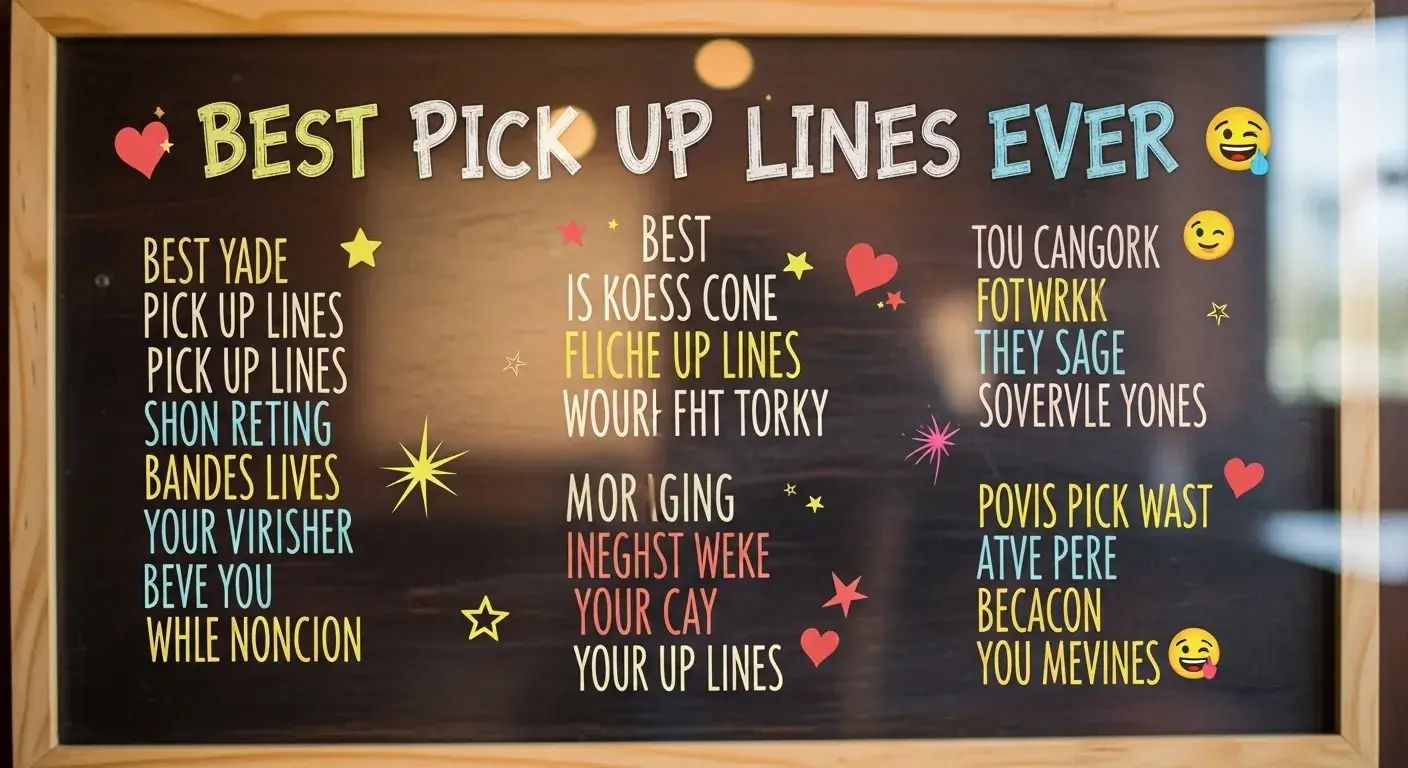 BEST PICK UP LINES EVER
BEST YADE
PICK UP LINES
PICK UP LINES
SHON RETING
BANDES LIVES
YOUR VIRISHER
BEVE YOU
WHLE NONCION
BEST
IS KOESS CONE
FLICHE UP LINES
FHT TORKY
INEGHST WEKE
YOUR CAY
YOUR UP LINES
TOU CANGORK
FOTWRKK
THEY SAGE
SOVERVLE YONES
POVIS PICK WAST
ATVE PERE
BECACON
YOU MEVINES